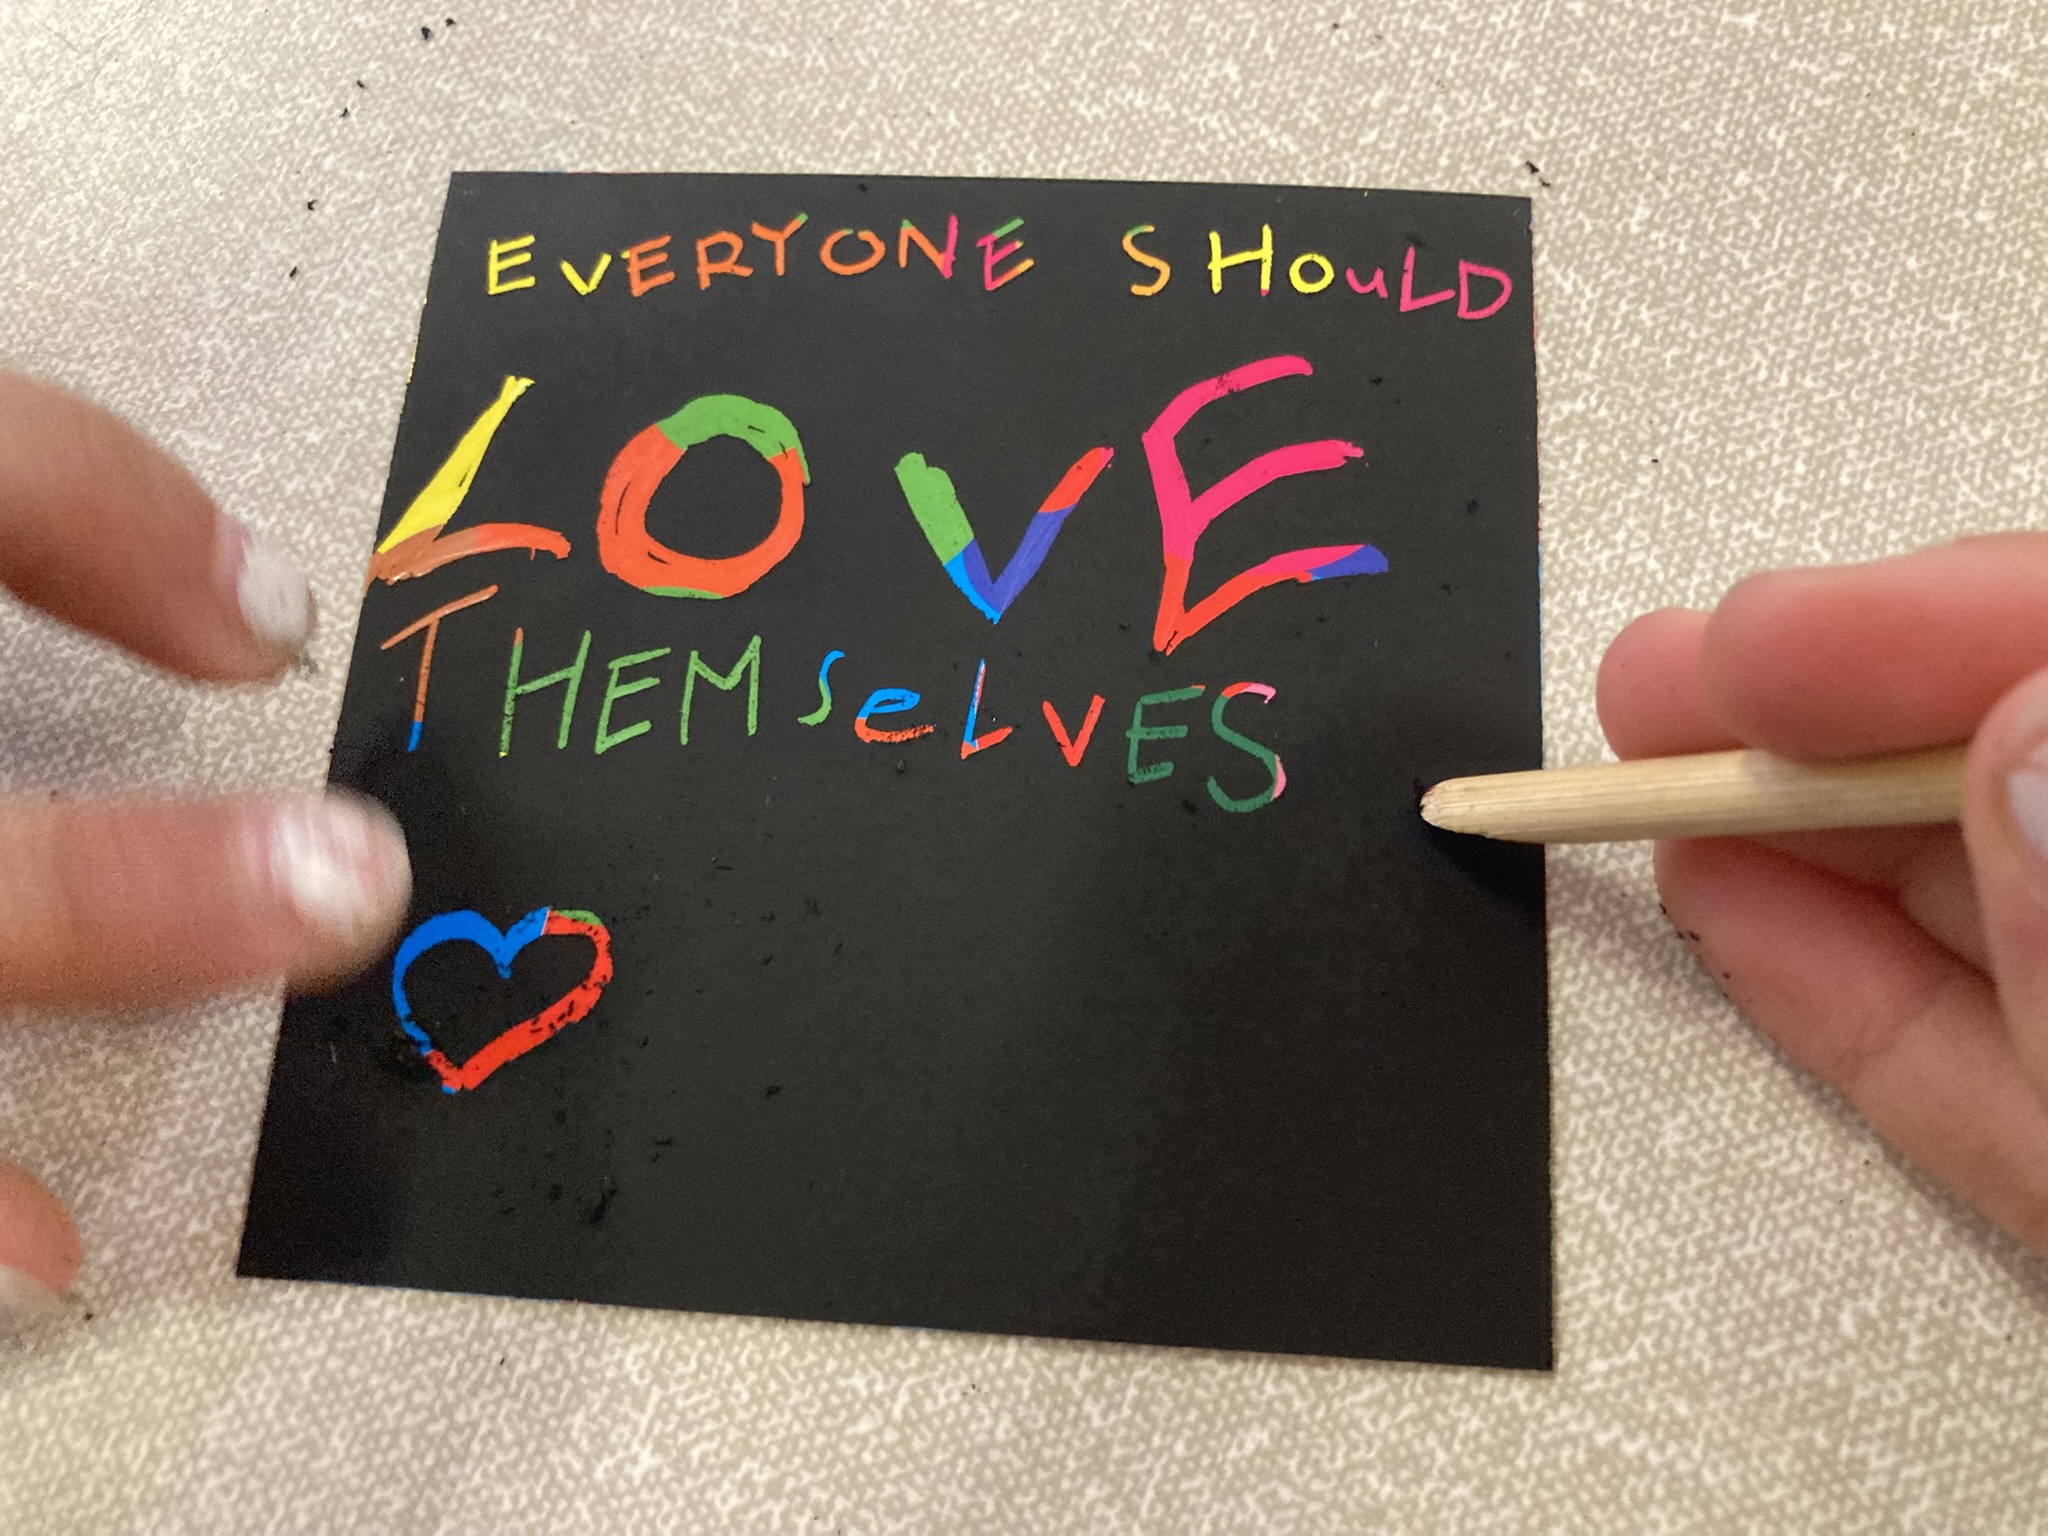 EVERYONE SHOuLD
LOVE
THEMSeLVES